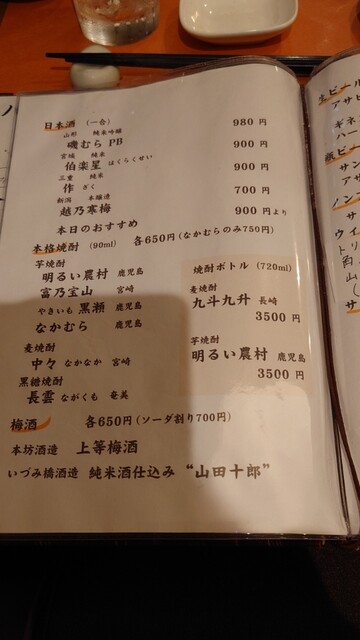 日本酒 (一合)
山形 純米吟醸
磯むら PB 980 円
宮城 純米
伯楽星 はくらくせい 900 円
三重 純米
作 ざく 900 円
新潟 本醸造
越乃寒梅 700 円
本日のおすすめ 900 円より
本格焼酎 (90ml) 各650円(なかむらのみ750円)
芋焼酎
明るい農村 鹿児島
富乃宝山 宮崎
やきいも 黒瀬 鹿児島
なかむら 鹿児島
麦焼酎
中々 なかなか 宮崎
黒糖焼酎
長雲 ながくも 奄美
焼酎ボトル (720ml)
麦焼酎
九斗九升 長崎
3500 円
芋焼酎
明るい農村 鹿児島
3500 円
梅酒 各650円(ソーダ割り700円)
本坊酒造 上等梅酒
いづみ橋酒造 純米酒仕込み “山田十郎”
生ビール
アサヒ
ギネ
ハー
瓶ビー
サン
アサ
ノン
サ
ウイ
トリ
角
山
(
サ